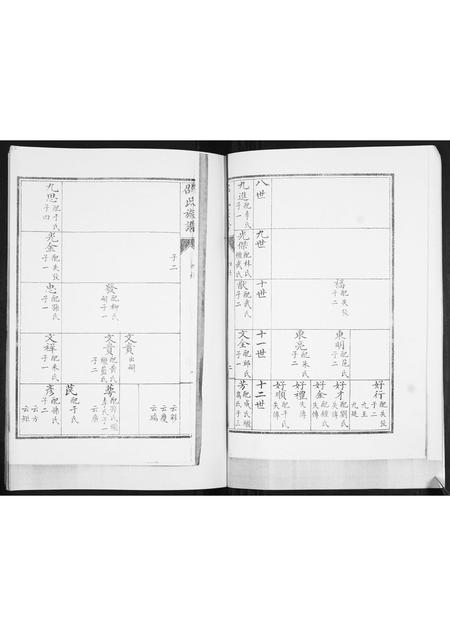 八世
九世
十世
十一世
十二世
福
配失攷
子二
東明
配范氏
子二
東亮
配朱氏
子二
好行
配失攷
子二
九圣
九廷
好才
配劉氏
失傳
好全
配鍾氏
失傳
好禮
失傳
好順
配于氏
失傳
九進
配李氏
子一
光傑
配林氏
繼武氏
子二
獻
配武氏
子二
文全
配邱氏
子一
芳
子三
邵氏族譜
子二
發
配柳氏
嗣子一
文貴
出嗣
文貴
配黄氏
繼藍氏
子二
云彩
云慶
云瑞
云廣
芪
配于氏
九思
配于氏
子四
光金
配失攷
子一
忠
配孫氏
子一
文祥
配朱氏
子一
彥
配孫氏
子二
云方
云矩